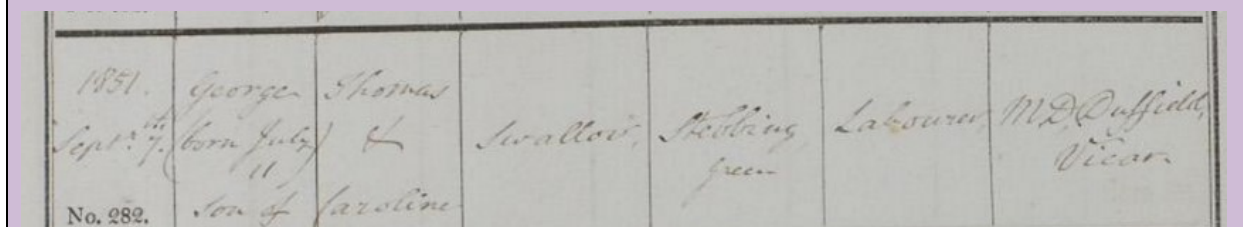 1851.
Septr. 7th.
No. 282.
George
(born July
11)
son of
Thomas
&
Caroline
Swallow.
Stebbing
green
Labourer.
M.D. Duffield,
Vicar.